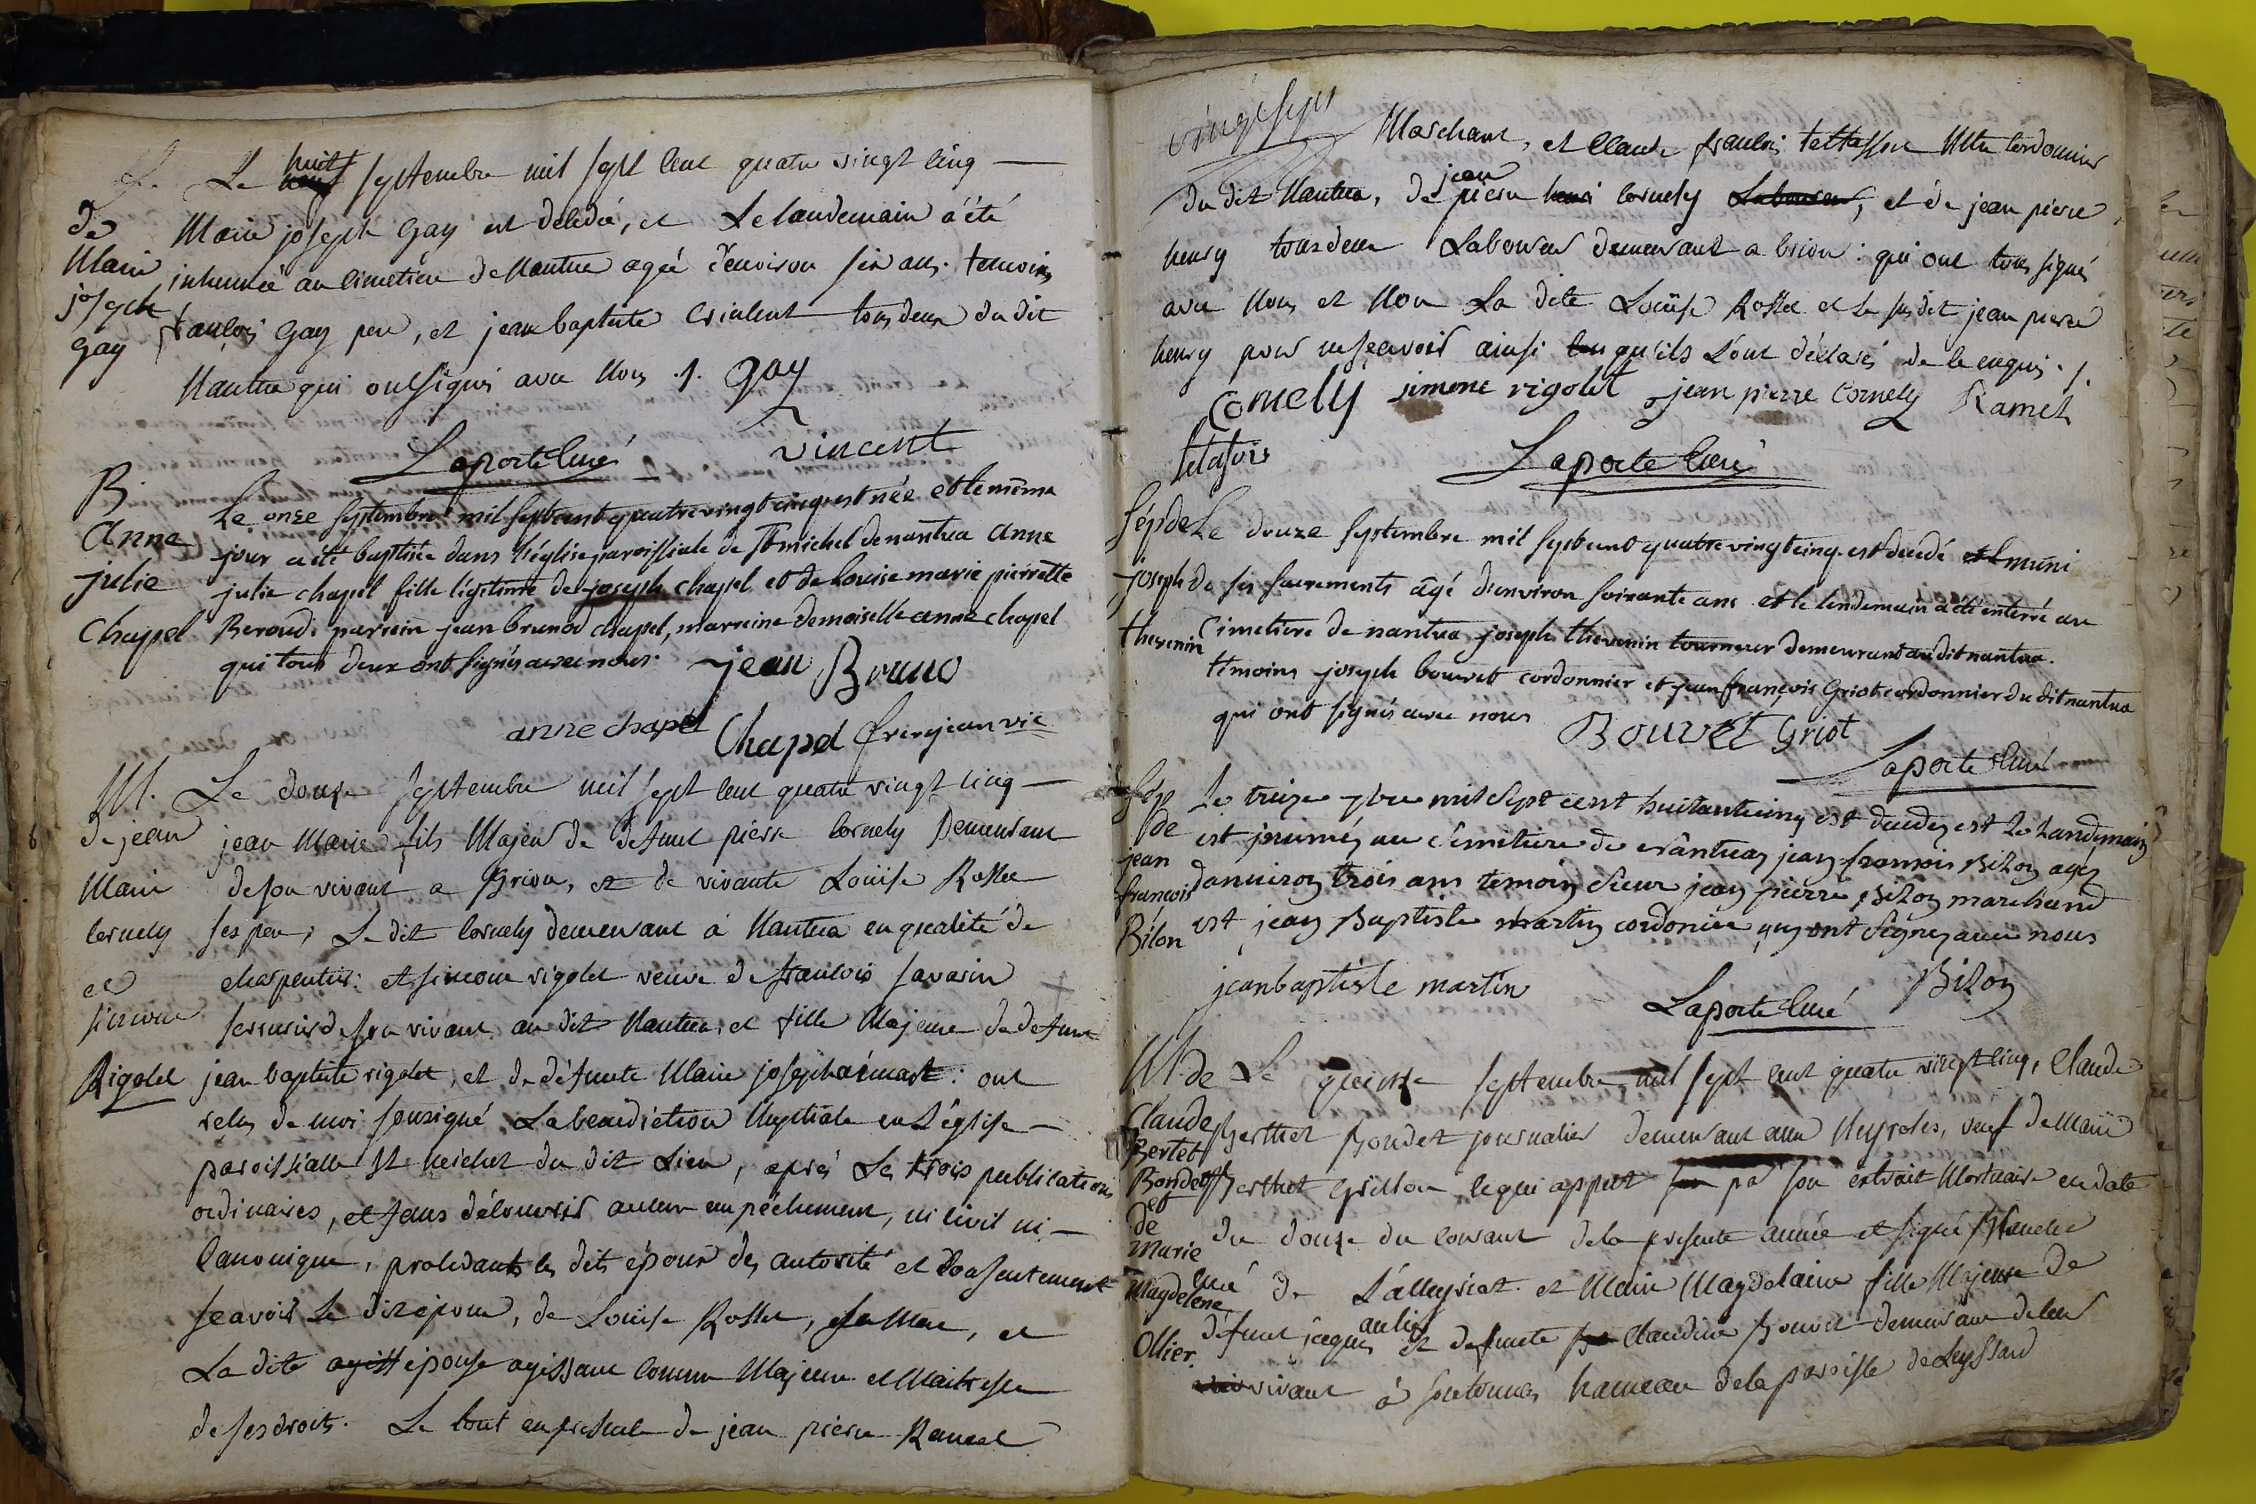 S.
de
Marie
joseph
gay
Le huit septembre mil sept cent quatre vingt cinq —
Marie joseph gay est décédée, et le landemain a été
inhumée au cimetiere de Nantua agée d'environ six ans. temoins
francois gay pere, et jean baptiste vincent tous deux du dit
Nantua qui ont signés avec Nous ./. gay
Laporte Curé vincent
B.
Anne
julie
Chapel
Le onze septembre mil sept cent quatre vingt cinq est née et le même
jour a été baptisée dans l'église paroissiale de St michel de nantua anne
julie chapel fille légitime de joseph chapel et de Louise marie pierrette
Beroud. parrein jean bruno chapel, marreine demoiselle anne chapel
qui tous deux ont signés avec nous. jean Bruno
anne chapel Chapel frerejean vic
M.
de jean
Marie
Cornely
et
Simone
Rigolet
Le douze septembre mil sept cent quatre vingt cinq —
jean Marie fils Majeur de défunt pierre Cornely Demeurant
de son vivant a Brion, et de vivante Louise Rosset
ses pere, Le dit Cornely demeurant à Nantua en qualité de
charpentier: et simone rigolet veuve de francois savarin
serrurier de son vivant au dit Nantua, et fille Majeure de defunt
jean baptiste rigolet, et de défunte Marie josephe : ont
reçus de moi sousigné La benediction Nuptiale en L'église —
paroissialle St Michel du dit Lieu, après les trois publications
ordinaires, et sans découvrir aucun empêchement, ni civil ni —
Canonique, procédants les dits époux des autorité et Consentement
sçavoir Le dit époux, de Louise Rosset, sa Mere, et
La dite agiss épouse agissant comme Majeure et Maitresse
de ses droits. Le tout en présence de jean pierre Ramel
vingt sept
Marchant, et Claude francois tettasson Mtre Cordonnier
du dit Nantua, de jean pierre Cornely Laboureur, et de jean pierre
henry tous deux Laboureur demeurant a brion: qui ont tous signés
avec Nous et Non La dite Louise Rosset et le susdit jean pierre
henry pour ne sçavoir ainsi qu'ils L'ont déclarés de ce enquis ./.
Cornelly simone rigolet jean pierre Cornely Ramel
Laporte Curé
sép de
joseph
thevenin
Le douze septembre mil sept cent quatre vingt cinq est decedé muni
de ses sacrements âgé d'environ soixante ans et le lendemain a été enterré au
cimetiere de nantua joseph thevenin tourneur demeurant au dit nantua.
témoins joseph bouvet cordonnier et jean françois Griot cordonnier du dit nantua
qui ont signés avec nous Bouvet Griot
Laporte Curé
sép
de
jean
françois
Bilon
Le treize 7bre mil sept cent huitante cinq est decedez est Le Landemain
est jnuméz au cémitiere de nântuaz jean francois Bilon agéz
danviron trois ans temoin sieur jean pierre Bilon marchand
est jean Baptiste martin cordonier quy ont signez avec nous
jean baptiste martin Bilon
Laporte Curé
M. de
Claude
Bertet
Bondet
et
de
Marie
Magdelene
Ollier.
Le quinze septembre mil sept cent quatre vingt cinq, Claude
Berthet Bondet journalier demeurant aux Neyroles, veuf de Marie
Berthet Grillon ce qui appert par son extrait Mortuaire en date
du douze du Courant de la presente année et signé
Curé de L'alleyriat. et Marie Magdelaine fille Majeure de
défunt jâques aulier et defunte Claudine demeurant de leur
vivant à hameau de la paroisse de Leyssard